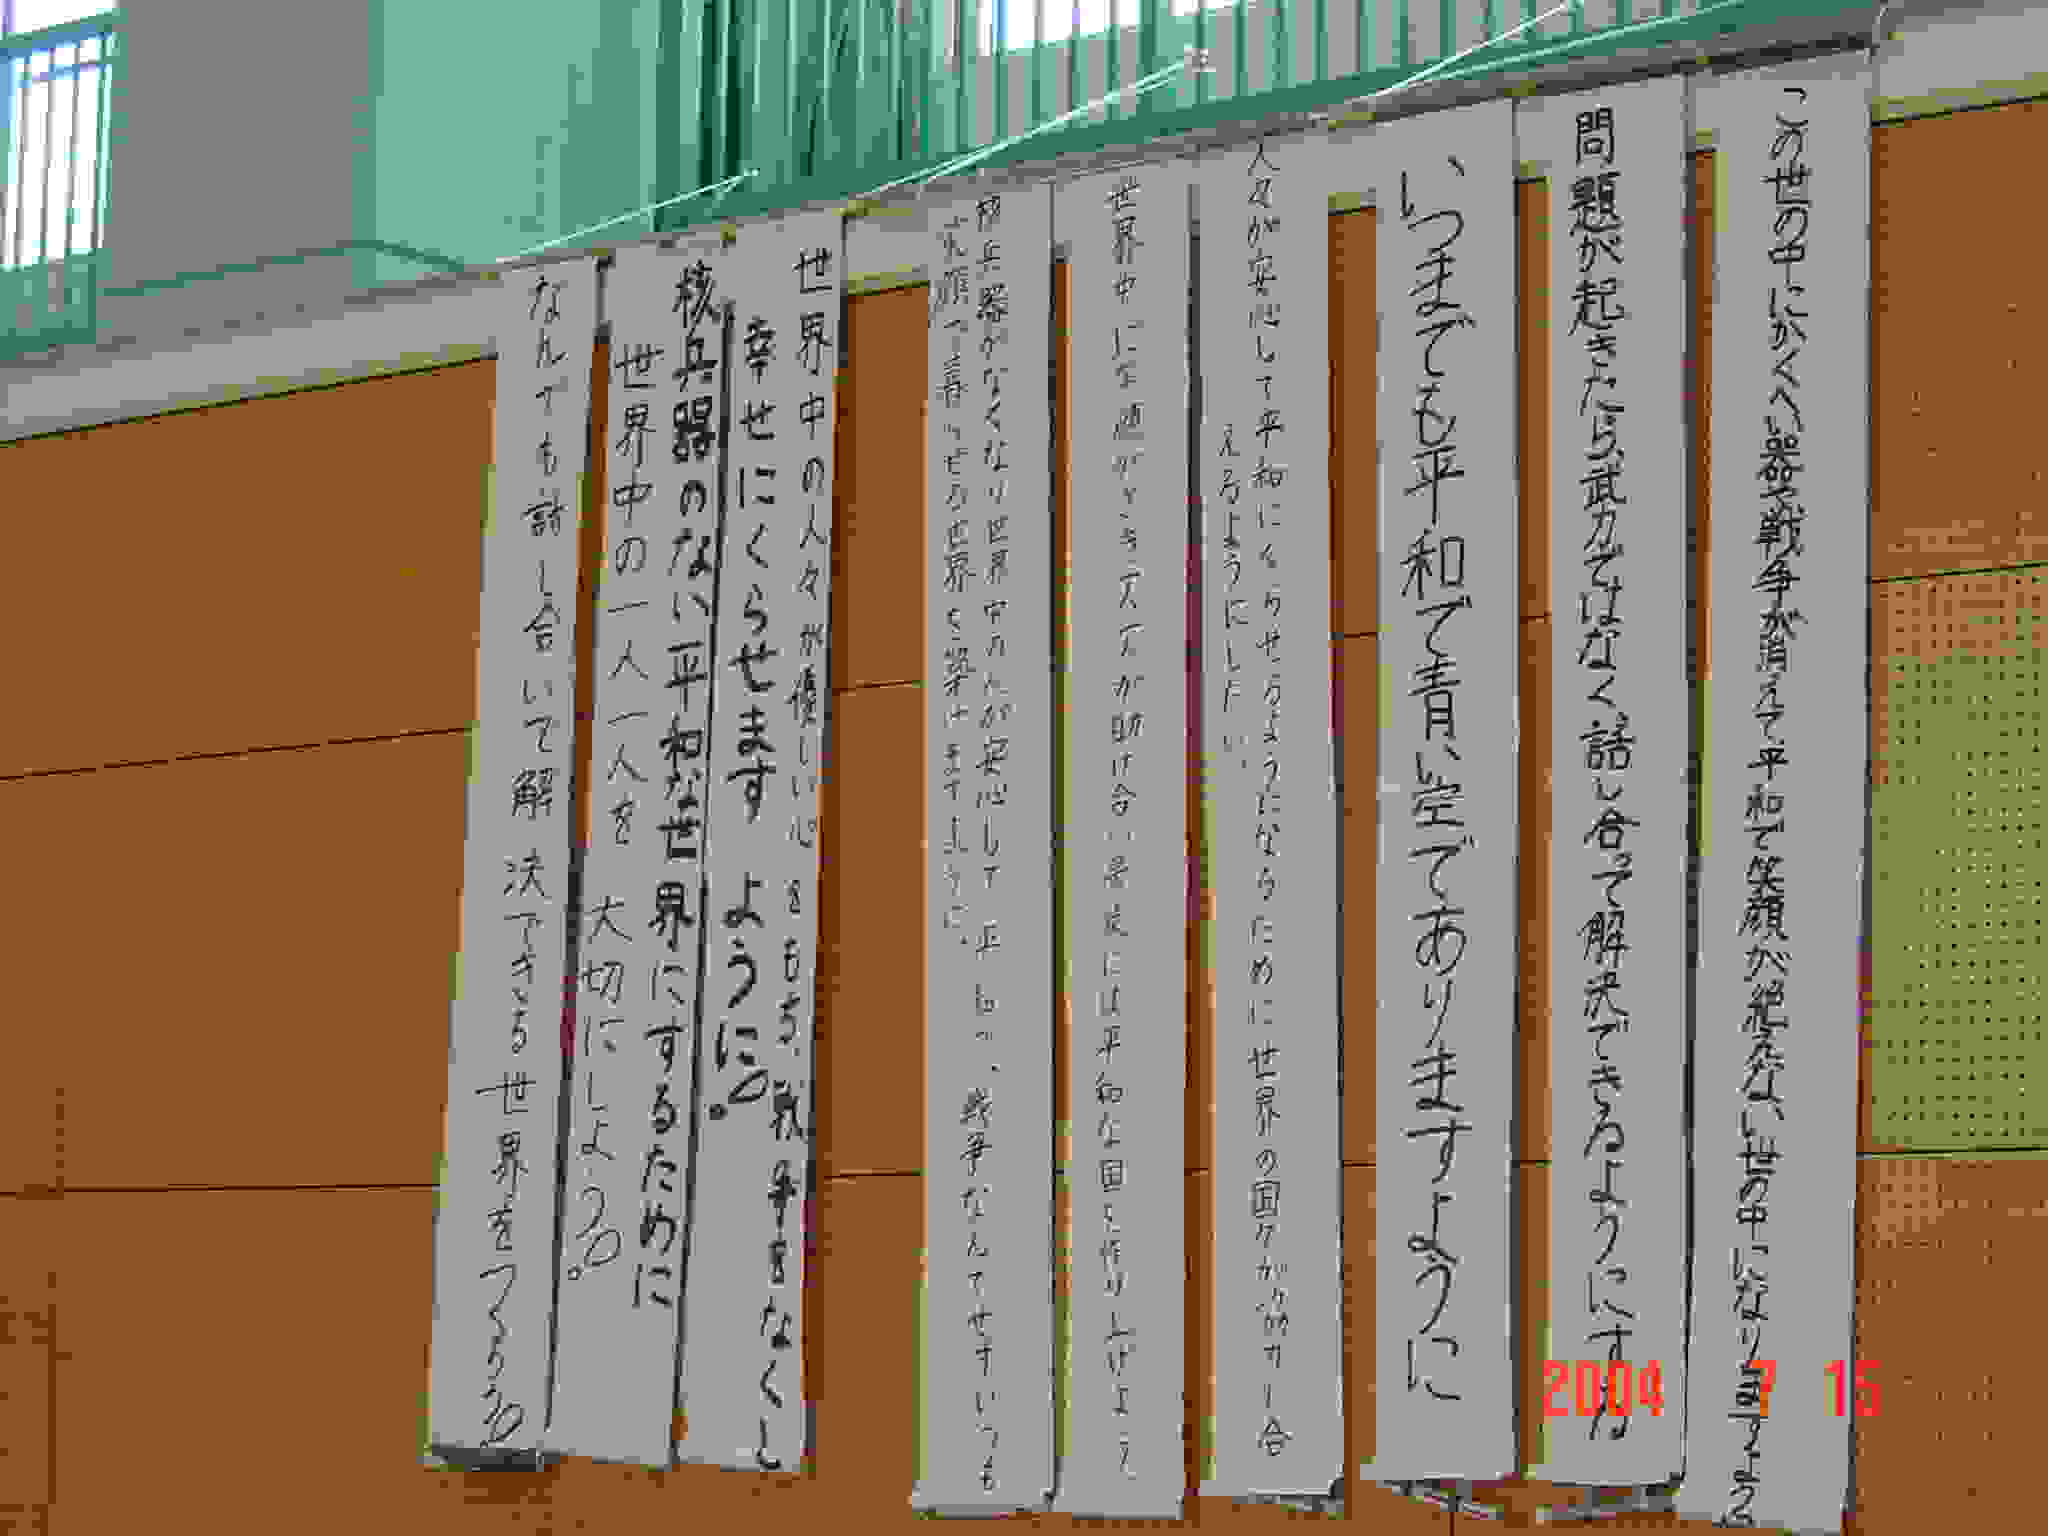 この世の中にかくへい器や戦争が消えて、平和で笑顔が絶えない世の中になりますよう
問題が起きたら、武力ではなく、話し合って解決できるようにする
いつまでも平和で青い空でありますように
人々が安心して平和にくらせるようになるために世界の国々が協力し合
えるようにしたい。
世界中に
が助け合い
には平和な国を作り上げよう
核兵器がなくなり世界中の人が安心して平和で、戦争なんてせずいつも
笑顔で暮らせる世界を築けますように。
世界中の人々が優しい心をもち、戦争をなくし
幸せにくらせますように。
核兵器のない平和な世界にするために
世界中の一人一人を大切にしよう。
なんでも話し合いで解決できる世界をつくろう。
2004 7 15